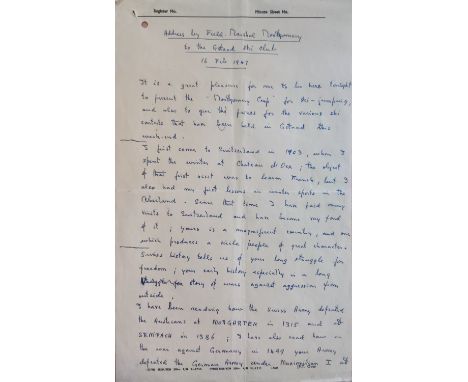 Register No.    Minute Sheet No.
Address by Field Marshal Montgomery
to the Gstaad Ski Club
16 Feb 1947
It is a great pleasure for me to be here tonight
to present the "Montgomery Cup" for ski-jumping,
and also to give the prizes for the various ski
contests that have been held in Gstaad this
week-end.
I first came to Switzerland in 1903, when I
spent the winter at Chateau d'Oex; the object
of that first visit was to learn French, but I
also had my first lessons in winter sports in the
Oberland. Since that time I have paid many
visits to Switzerland and have become very fond
of it; yours is a magnificent country, and one
which produces a virile people of great character.
Swiss history tells us of your long struggle for
freedom; your early history especially is a long
story of wars against aggression from
outside.
I have been reading how the Swiss Army defeated
the Austrians at MORGARTEN in 1315 and at
SEMPACH in 1386; I have also read how in
the war against Germany in 1499 your Army
defeated the German Army under Maximilian I at